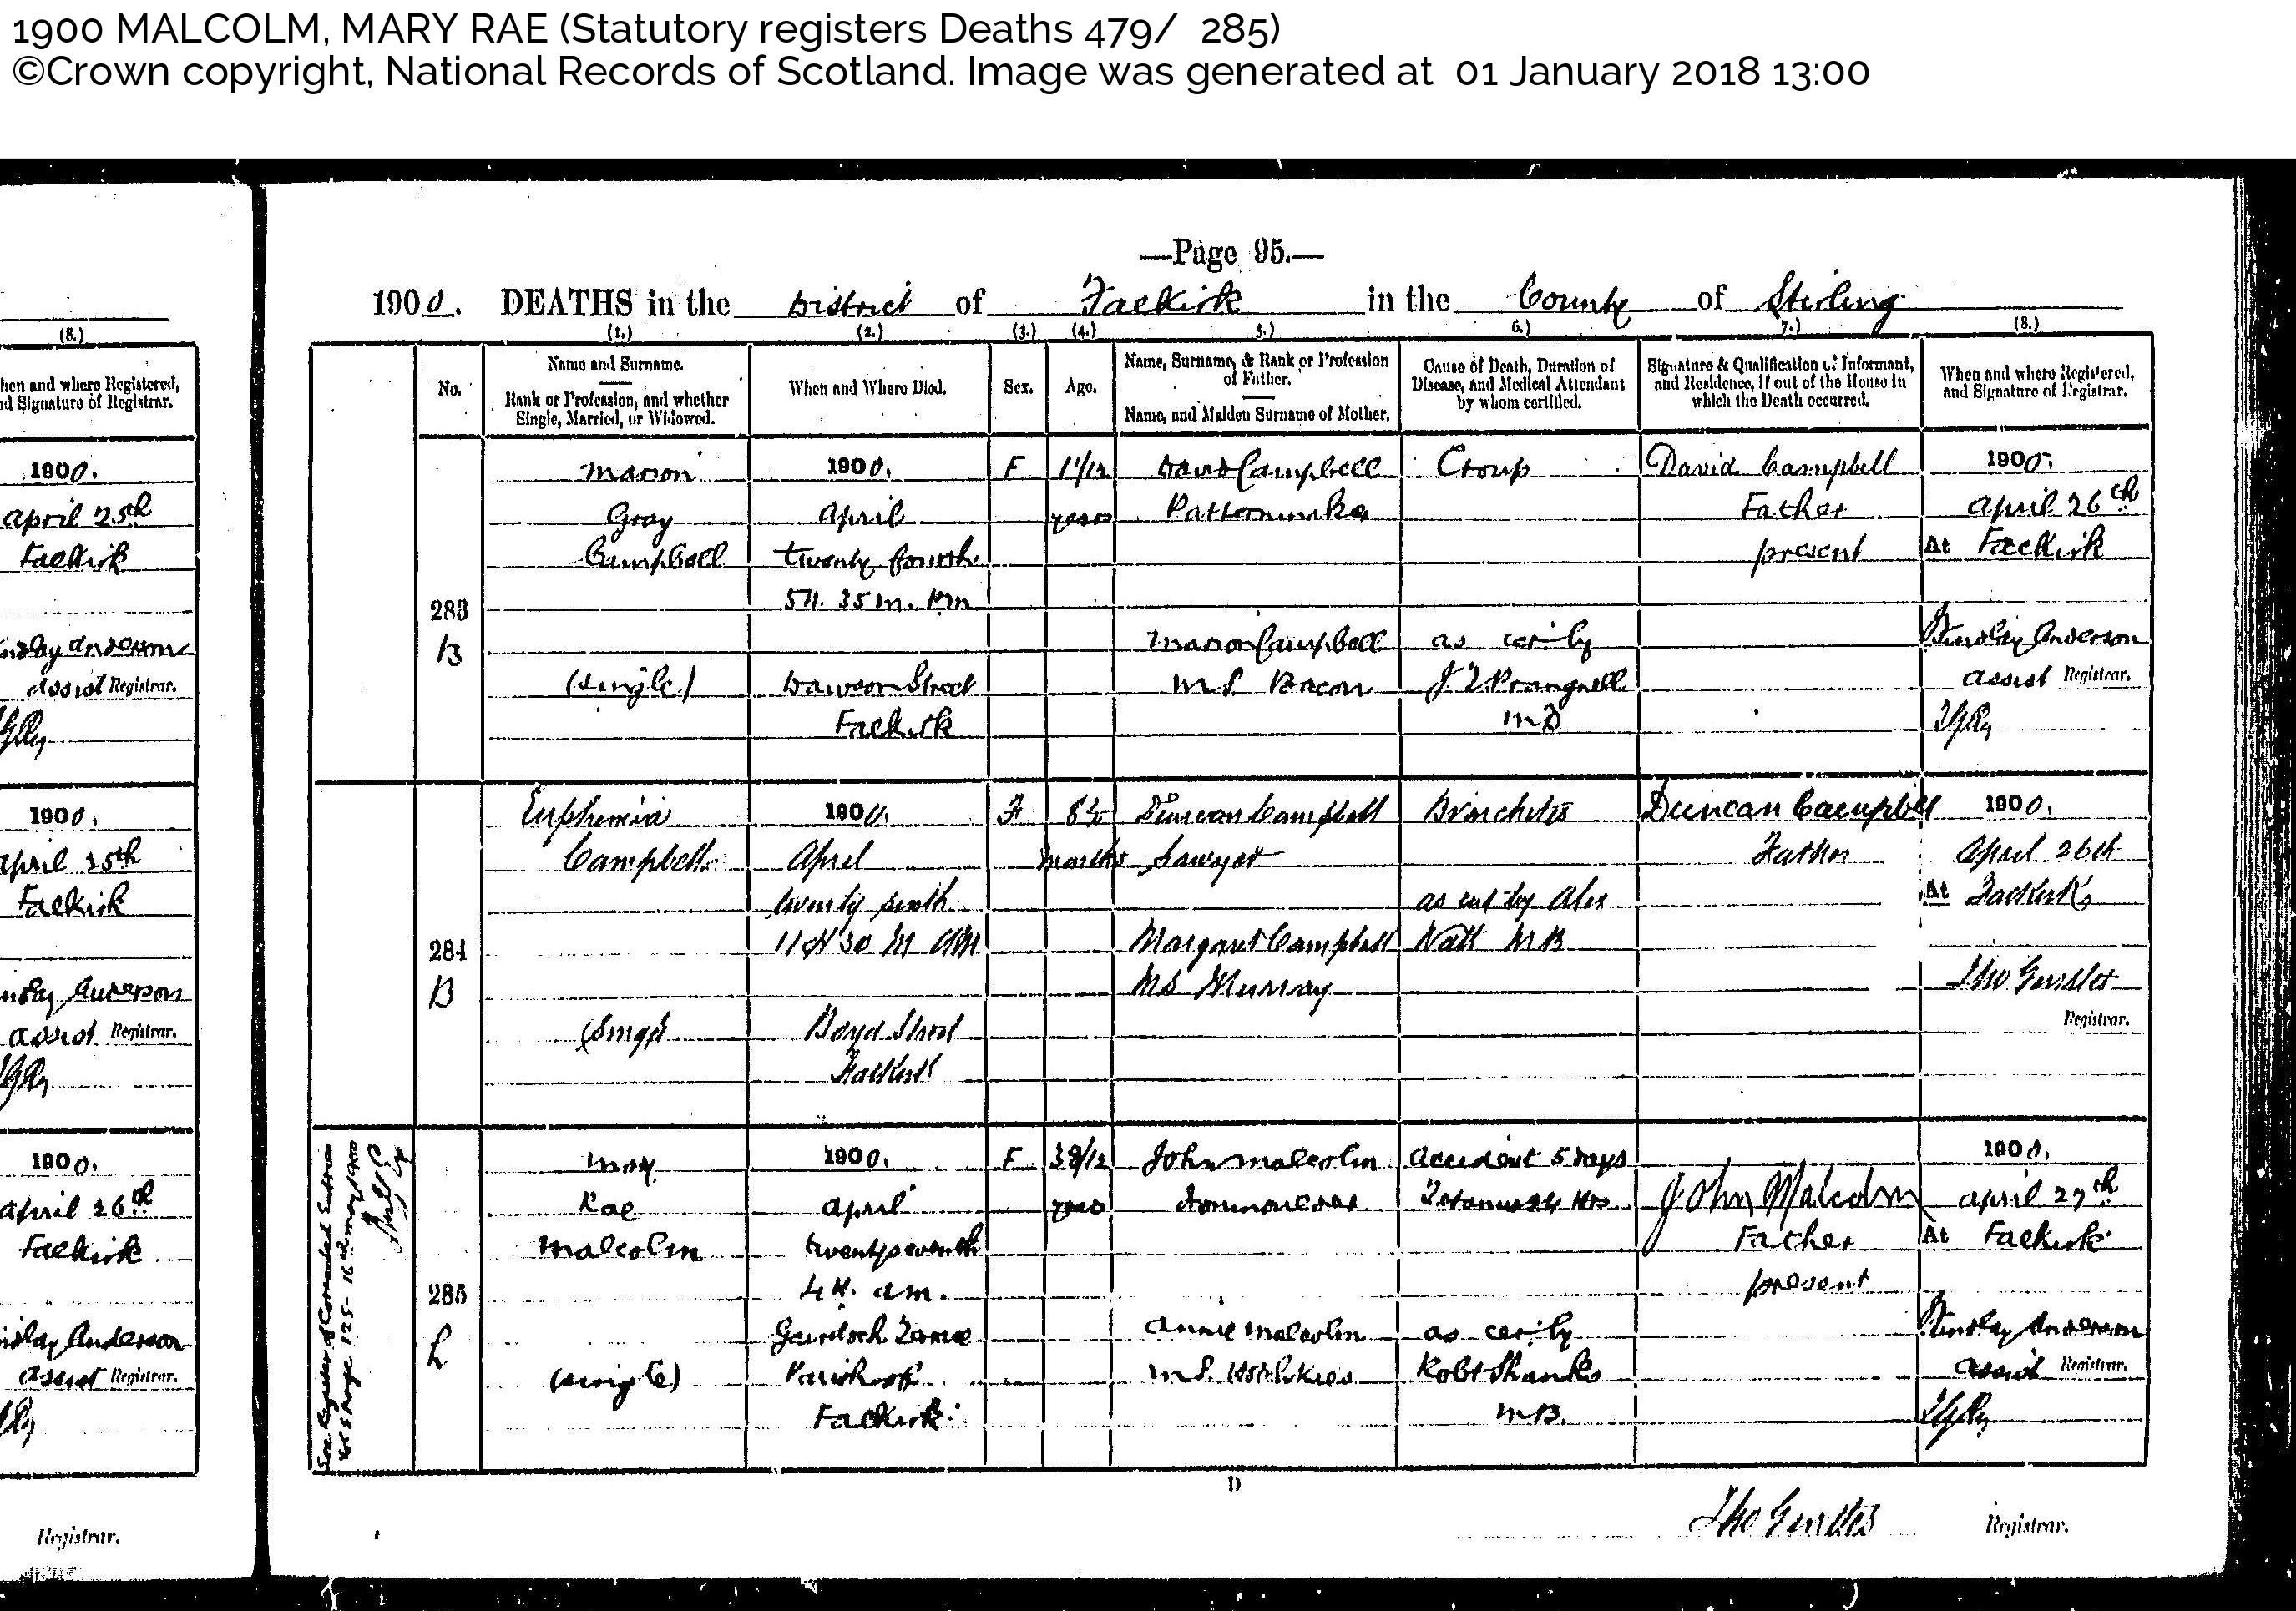 1900 MALCOLM, MARY RAE (Statutory registers Deaths 479/ 285)
©Crown copyright, National Records of Scotland. Image was generated at 01 January 2018 13:00
—Page 95.—
1900. DEATHS in the District of Falkirk in the County of Stirling
(8.)
hen and where Registered,
d Signature of Registrar.
1900.
April 25th
Falkirk
Anderson
assist Registrar.
1900.
April 25th
Falkirk
Anderson
assist Registrar.
1900.
April 26th
Falkirk
Anderson
assist Registrar.
Registrar.
(1.) (2.) (3.) (4.) 5.) 6.) 7.) (8.)
No.
Name and Surname.
Rank or Profession, and whether
Single, Married, or Widowed.
When and Where Died.
Sex.
Age.
Name, Surname, & Rank or Profession
of Father.
Name, and Maiden Surname of Mother.
Cause of Death, Duration of
Disease, and Medical Attendant
by whom certified.
Signature & Qualification of Informant,
and Residence, if out of the House in
which the Death occurred.
When and where Registered,
and Signature of Registrar.
283
B
Marion
Gray
Campbell
(single)
1900.
April
twenty fourth
5H. 35m. PM
Dawson Street
Falkirk
F
11/12
years
David Campbell
Patternmaker
Marion Campbell
M.S. Bacon
Croup
as cer. by
MD
David Campbell
Father
present
1900.
April 26th
At Falkirk
Findlay Anderson
assist Registrar.
284
B
Euphemia
Campbell
(Single)
1900.
April
twenty sixth
11 H 30 M AM
Boyd Street
Falkirk
F
months
Duncan Campbell
Sawyer
Margaret Campbell
MS Murray
Bronchitis
as cert by Alex
MB
Duncan Campbell
Father
1900.
April 26th
At Falkirk
Registrar.
See Register of Corrected Entries
Vol 5 Page 125 - 16th May 1900
285
L
May
Rae
Malcolm
(single)
1900.
April
twenty seventh
4 H. am.
Parish of
Falkirk
F
3 8/12
years
John Malcolm
Annie Malcolm
M.S.
Accident 5 days
Tetanus 24 Hrs
as cer. by
Robt Shanks
MB.
John Malcolm
Father
present
1900.
April 27th
At Falkirk
Findlay Anderson
assist Registrar.
D
Registrar.